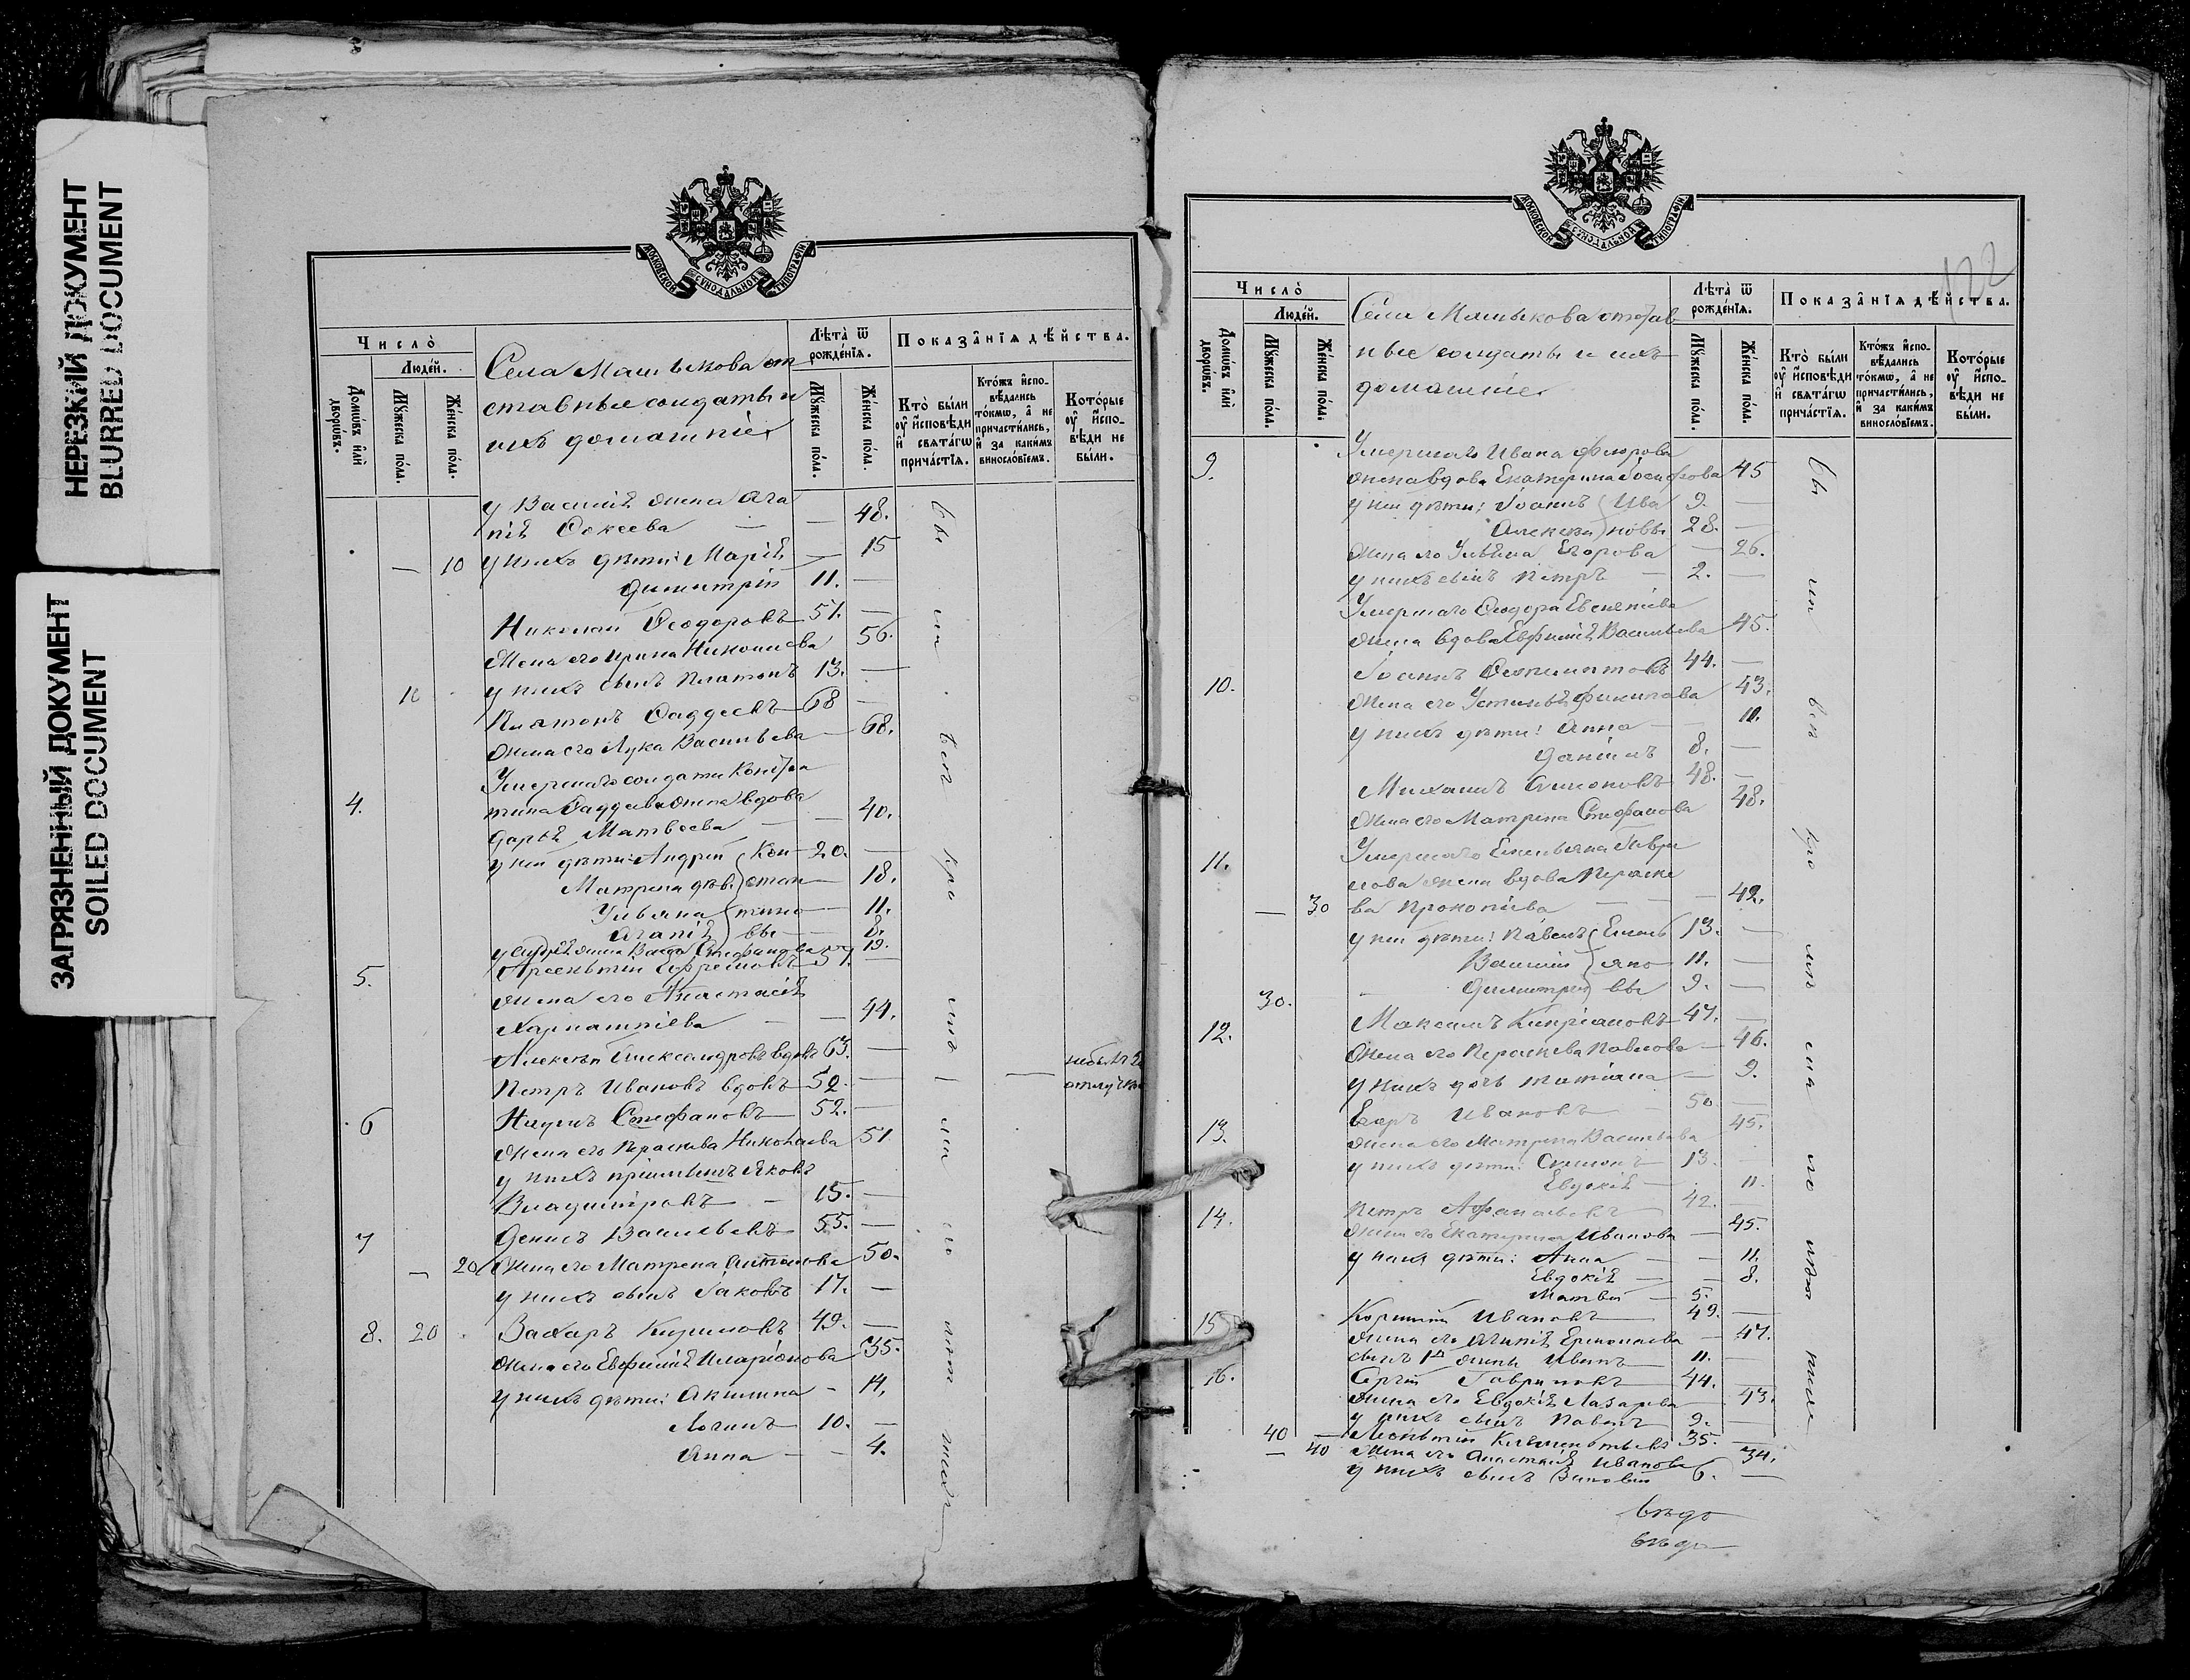 НЕРЕЗКИЙ ДОКУМЕНТ
BLURRED DOCUMENT
ЗАГРЯЗНЕННЫЙ ДОКУМЕНТ
SOILED DOCUMENT
МОСКОВСКОЙ СѴНОДАЛЬНОЙ ТИПОГРАФІИ
Число̀
Люде́й.
Домѡ́въ и҆лѝ дворѡ́въ.
Мꙋ́жеска по́ла.
Же́нска по́ла.
Села Машыкова от
ставные солдаты и
ихъ домашніе
Лѣ̑та ѿ рожде́нїѧ.
Мꙋ́жеска по́ла.
Же́нска по́ла.
Показа̑нїѧ дѣ́йства.
Кто̀ бы́ли ᲂу҆ и҆сповѣ́ди и҆ свѧта́гѡ прича́стїѧ.
Кто́жъ и҆спо-вѣ́дались то́кмѡ, а҆ не причасти́лись, и҆ за каки́мъ виносло́вїемъ.
Кото́рые ᲂу҆ и҆спо-вѣ́ди не бы́ли.
у Василія жена Ага
пія Ѳокеева — — 48.
— 10 у нихъ дѣти: Марія — 15
Димитрій 11. —
Николай Ѳеодоровъ 51. —
Жена его Ирина 56.
у нихъ сынъ Платонъ 13. —
10 Платонъ Ѳаддеевъ 68 —
жена его Лука Васильева — 68.
4. Умершаго солдата Конста
тина Ѳаддеева жена вдова
Дарья Матвѣева — — 40.
у ней дѣти: Андрей Кон 20. —
Матрена дѣв. стан — 18.
Ульяна тино — 11.
Агапія вы — 8.
19.
5. Арсентій Ефремовъ 57. —
жена его Анастасія
Харлампіева — — 44.
Алексѣй Александровъ вдовъ 63. —
Петръ Ивановъ вдовъ 52. — не былъ
отлучк
6 Наумъ Стефановъ 52. —
жена его Параскева Николаева 51
у нихъ пріимышъ Яковъ
Владиміровъ — 15. —
7 Денисъ Васильевъ 55. —
— 20 жена его Матрена Антонова 50.
у нихъ сынъ Іаковъ 17. —
8. 20 Захаръ Кириловъ 49. —
жена его Евфимія Иларіонова 35.
у нихъ дѣти: Акилина — 14.
Логинъ 10. —
Анна — — 4.
бы ли вси кро мѣ ма ло лѣт нихъ
МОСКОВСКОЙ СѴНОДАЛЬНОЙ ТИПОГРАФІИ
122
Число̀
Люде́й.
Домѡ́въ и҆лѝ дворѡ́въ.
Мꙋ́жеска по́ла.
Же́нска по́ла.
Села Машыкова отстав
ные солдаты и ихъ
домашніе
Лѣ̑та ѿ рожде́нїѧ.
Мꙋ́жеска по́ла.
Же́нска по́ла.
Показа̑нїѧ дѣ́йства.
Кто̀ бы́ли ᲂу҆ и҆сповѣ́ди и҆ свѧта́гѡ прича́стїѧ.
Кто́жъ и҆спо-вѣ́дались то́кмѡ, а҆ не причасти́лись, и҆ за каки́мъ виносло́вїемъ.
Кото́рые ᲂу҆ и҆спо-вѣ́ди не бы́ли.
9. Умершаго Ивана Флорова
жена вдова Екатерина Іосифова 45
у ней дѣти: Іоаннъ Ива 9. —
Алексѣй новы 28. —
жена его Ульяна Егорова — 26.
у нихъ сынъ Петръ — 2. —
Умершаго Ѳеодора Евсентіева
жена вдова Евфимія Васильева 45.
10. Іоаннъ 44. —
Жена его Устинья Филипова 43.
у нихъ дѣти: Анна — 11.
Даніилъ 8. —
Михаилъ Симоновъ 48. —
Жена его Матрена Стефанова 48.
11. Умершаго Емельяна Гаври
лова жена вдова Параске
— 30 ва Прокопіева — — 42.
у ней дѣти: Павелъ Емель 13. —
Василій яно 11. —
30. Димитрій вы 9. —
12. Максимъ Кипріановъ 47. —
Жена его Параскева Павлова — 46.
у нихъ дочь Татіана — 9.
13. Егоръ Ивановъ 50 —
жена его Матрена Васильева 45.
у нихъ дѣти: Симеонъ 13. —
Евдокія — 11.
14. Петръ Афанасьевъ 42. —
жена его Екатерина Иванова — 45.
у нихъ дѣти: Анна — — 11.
Евдокія — — 8.
Матвѣй — 5.
15 Корнилій Ивановъ 49. —
жена его Агапія — 47.
сынъ 1й жены Иванъ 11. —
16. Сергій Гавриловъ 44. —
жена его Евдокія Лазарева — 43.
у нихъ сынъ Павелъ 9. —
40 — Леонтій Климентьевъ 35. —
— 40 жена его Анастасія Иванова 34.
у нихъ сынъ 6. —
бы ли вси кро мѣ ма ло лѣт нихъ
вѣдо
вѣдо